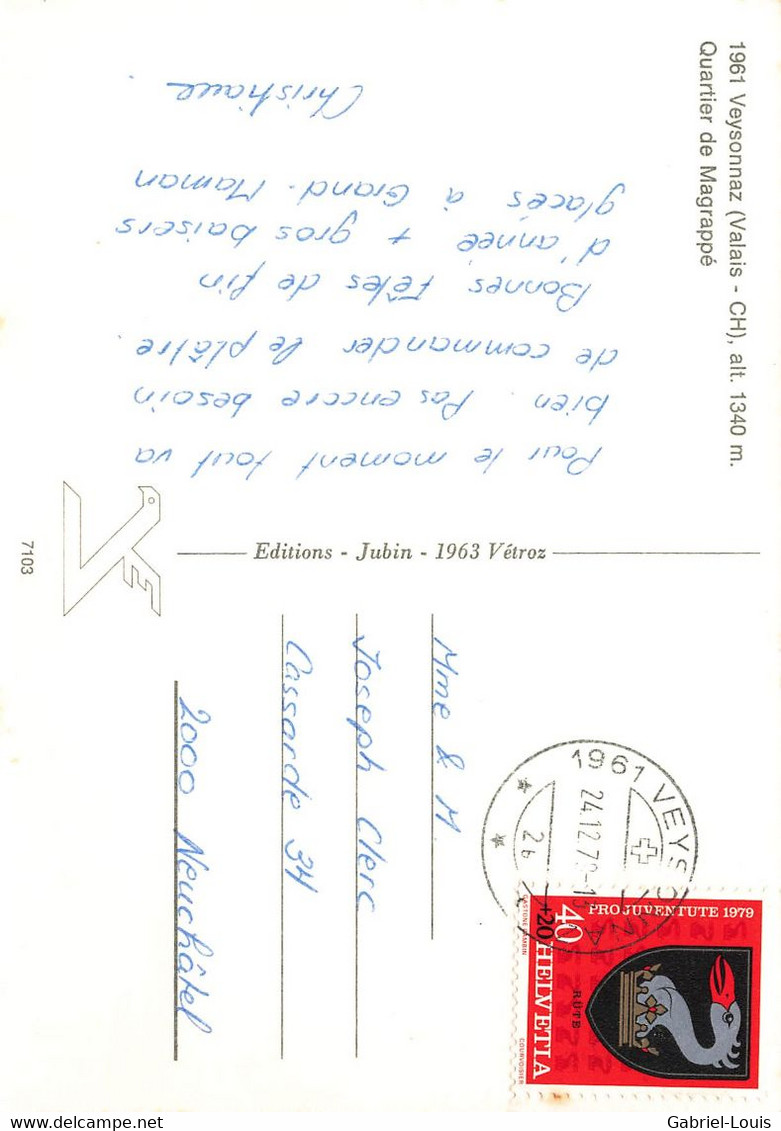 1961 Veysonnaz (Valais - CH), alt. 1340 m.
Quartier de Magrappé
Pour le moment tout va
bien. Pas encore besoin
de commander le plâtre.
Bonnes fêtes de fin
d'année + gros baisers
glacés à Grand-Maman
Christiane
Editions - Jubin - 1963 Vétroz
7103
Mme & M.
Joseph Clerc
Cassarde 34
2000 Neuchâtel
1961 VEYSONNAZ
24.12.79-13
2b
PRO JUVENTUTE 1979
40
+20
HELVETIA
RÜTE
GASTONE CAMBIN
COURVOISIER
delcampe.net
Gabriel-Louis